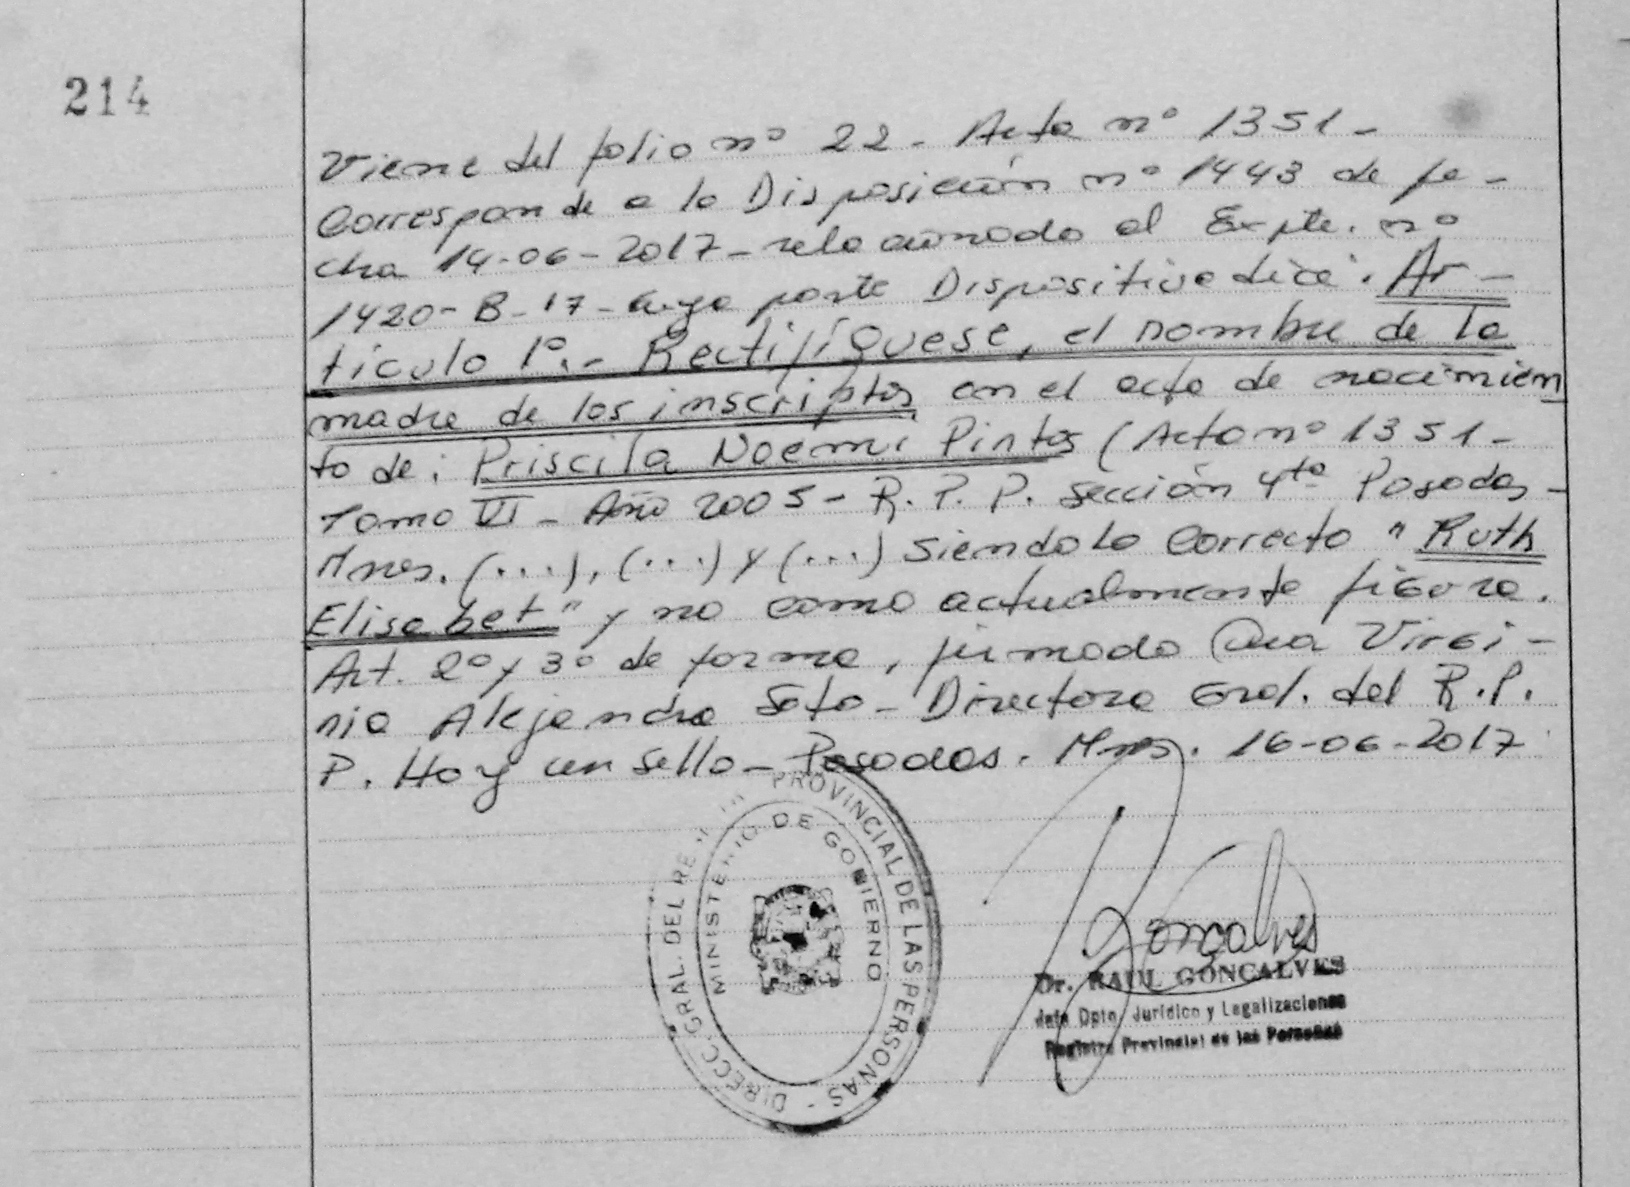 214
Viene del folio nº 22 - Acta nº 1351 -
Corresponde a la Disposición nº 1443 de fe -
cha 14-06-2017 - relacionado al Expte. nº
1420 - B - 17 - cuya parte Dispositiva dice: Ar -
tículo 1º.- Rectifíquese, el nombre de la
madre de los inscriptos en el acta de nacimien
to de: Priscila Noemi Pintos (Acta nº 1351 -
Tomo VI - Año 2005 - R. P. P. sección 4ta Posadas -
Mnes. (...), (...) y (...) siendo lo Correcto " Ruth
Elisabet " y no como actualmente figura.
Art. 2º y 3º de forma, firmado Dra Virgi -
nia Alejandra Soto - Directora Gral. del R. P.
P. Hay un sello - Posadas. Mnes. 16-06-2017
DIRECC. GRAL. DEL PROVINCIAL DE LAS PERSONAS -
MINISTERIO DE GOBIERNO
Goncalves
Dr. RAUL GONCALVES
Jefe Dpto. Jurídico y Legalizaciones
Registro Provincial de las Personas